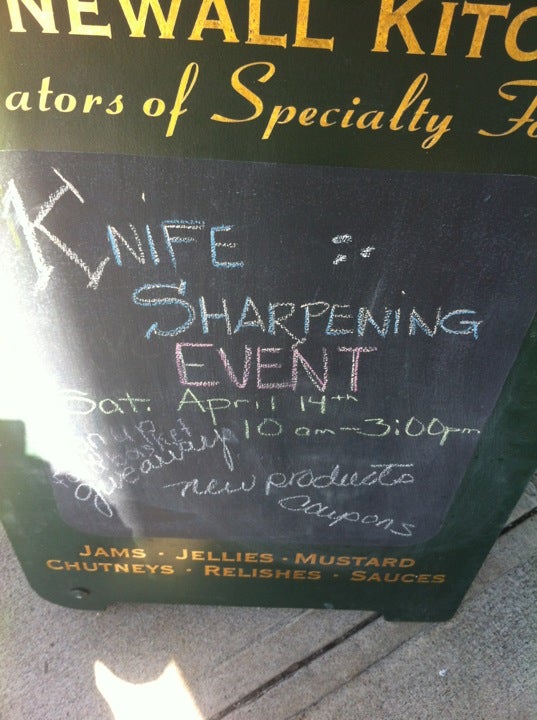 NEWALL KITC
ators of Specialty Fo
KNIFE
SHARPENING
EVENT
Sat. April 14th
10 am-3:00pm
up
basket
giveaway
new products
coupons
JAMS · JELLIES · MUSTARD
CHUTNEYS · RELISHES · SAUCES